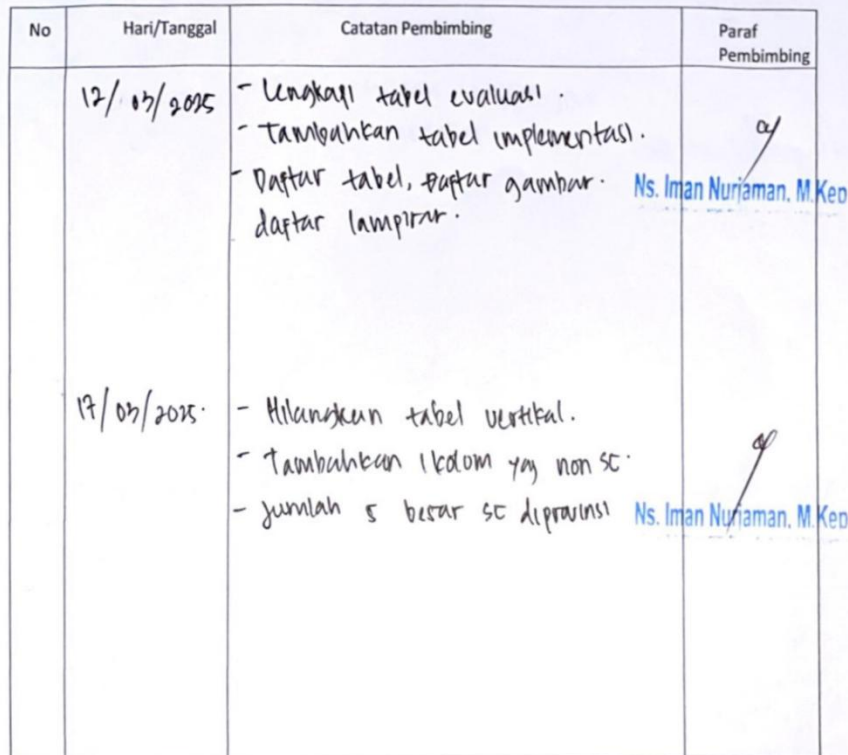 No Hari/Tanggal Catatan Pembimbing Paraf
Pembimbing
12/03/2025 - Lengkapi tabel evaluasi.
- Tambahkan tabel implementasi.
- Daftar tabel, Daftar gambar. Ns. Iman Nurjaman, M.Kep
daftar lampiran.
17/03/2025. - Hilangkan tabel vertikal.
- Tambahkan 1 kolom yg non sc.
- Jumlah 5 besar sc diprovinsi Ns. Iman Nurjaman, M.Kep